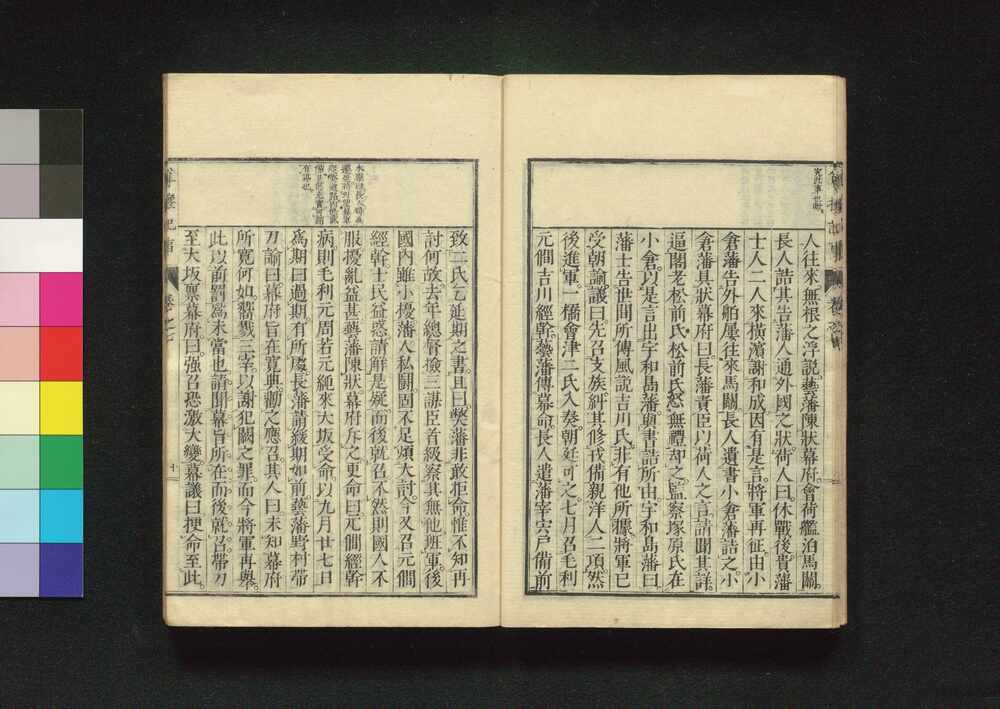 人往來無根之浮說。藝藩陳狀幕府。會荷艦泊馬關。
長人詰其告藩人通外國之狀。荷人曰。休戰後貴藩
士人二人來橫濱謝和成。因有是言。將軍再征。由小
倉藩告外舶屢往來馬關。長人遺書小倉藩詰之。小
倉藩具狀幕府曰。長藩責臣以荷人之言。請聞其詳。
逼閣老松前氏。松前氏怒無禮却之。監察塚原氏在
小倉。以是言出宇和島藩。與書詰所由。宇和島藩曰。
藩士告世間所傳風說。吉川氏非有他所據。將軍已
受朝諭。議曰。先召支族糾其修戎備親洋人二項。然
後進軍。一橋會津二氏入奏。朝廷可之。七月召毛利
元僴吉川經幹。藝藩傳幕命。長人遣藩宰宍戶備前
致二氏乞延期之書。且曰。弊藩非敢拒命。惟不知再
討何故。去年總督撿三謀臣首級。察其無他班軍。後
國內雖小擾。藩人私鬪。固不足煩大討。今又召元僴
經幹。士民益惑。請解是疑而後就召。不然則國人不
服。擾亂益甚。藝藩陳狀。幕府斥之。更命曰。元僴經幹
病則毛利元周若元純來大坂受命。以九月廿七日
爲期。曰。過期有所處。長藩請緩期如前。藝藩野村帶
刀諭曰。幕府旨在寬典。勸之應召。其人曰。未知幕府
所寬何如。嚮戮三宰。以謝犯闕之罪。而今將軍再舉。
此以前罰爲未當也。請聞幕旨所在而後就召。帶刀
至大坂禀幕府曰。強召恐激大變。幕議曰。梗命至此。